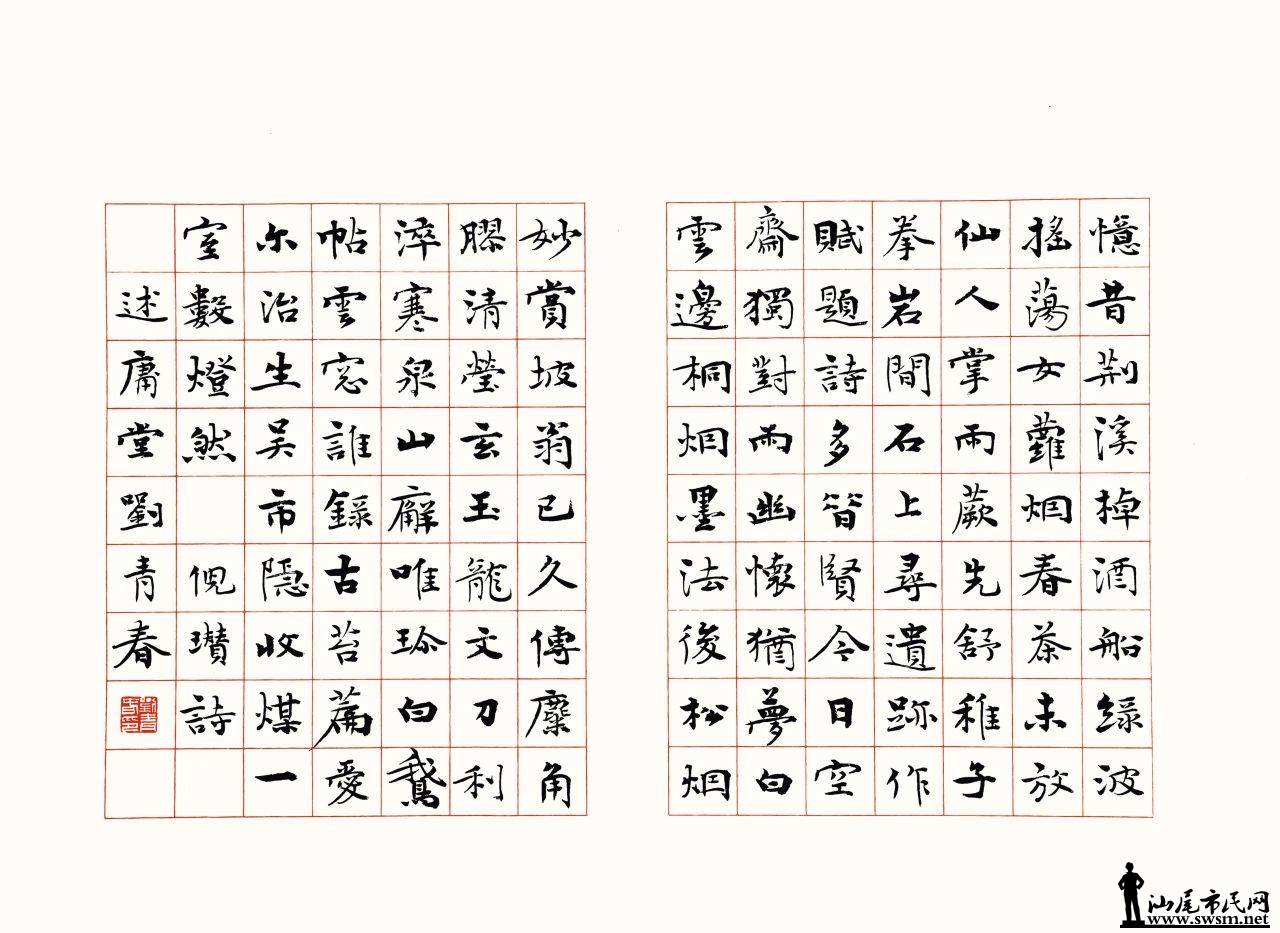 憶昔荆溪棹酒船綠波
搖蕩女蘿烟春茶未放
仙人掌雨蕨先舒稚子
拳岩間石上尋遺跡作
賦題詩多㫺賢今日空
齋獨對雨幽懷猶夢白
雲邊桐烟墨法後松烟
妙賞坡翁已久傳麋角
膠清瑩玄玉龍文刀利
淬寒泉山廨唯珍白鵝
帖雲窓誰錄古苔篇愛
尓治生吳市隱收煤一
室數燈然 倪瓚詩
述庸堂劉青春
劉青春印
汕尾市民网
www.swsm.net